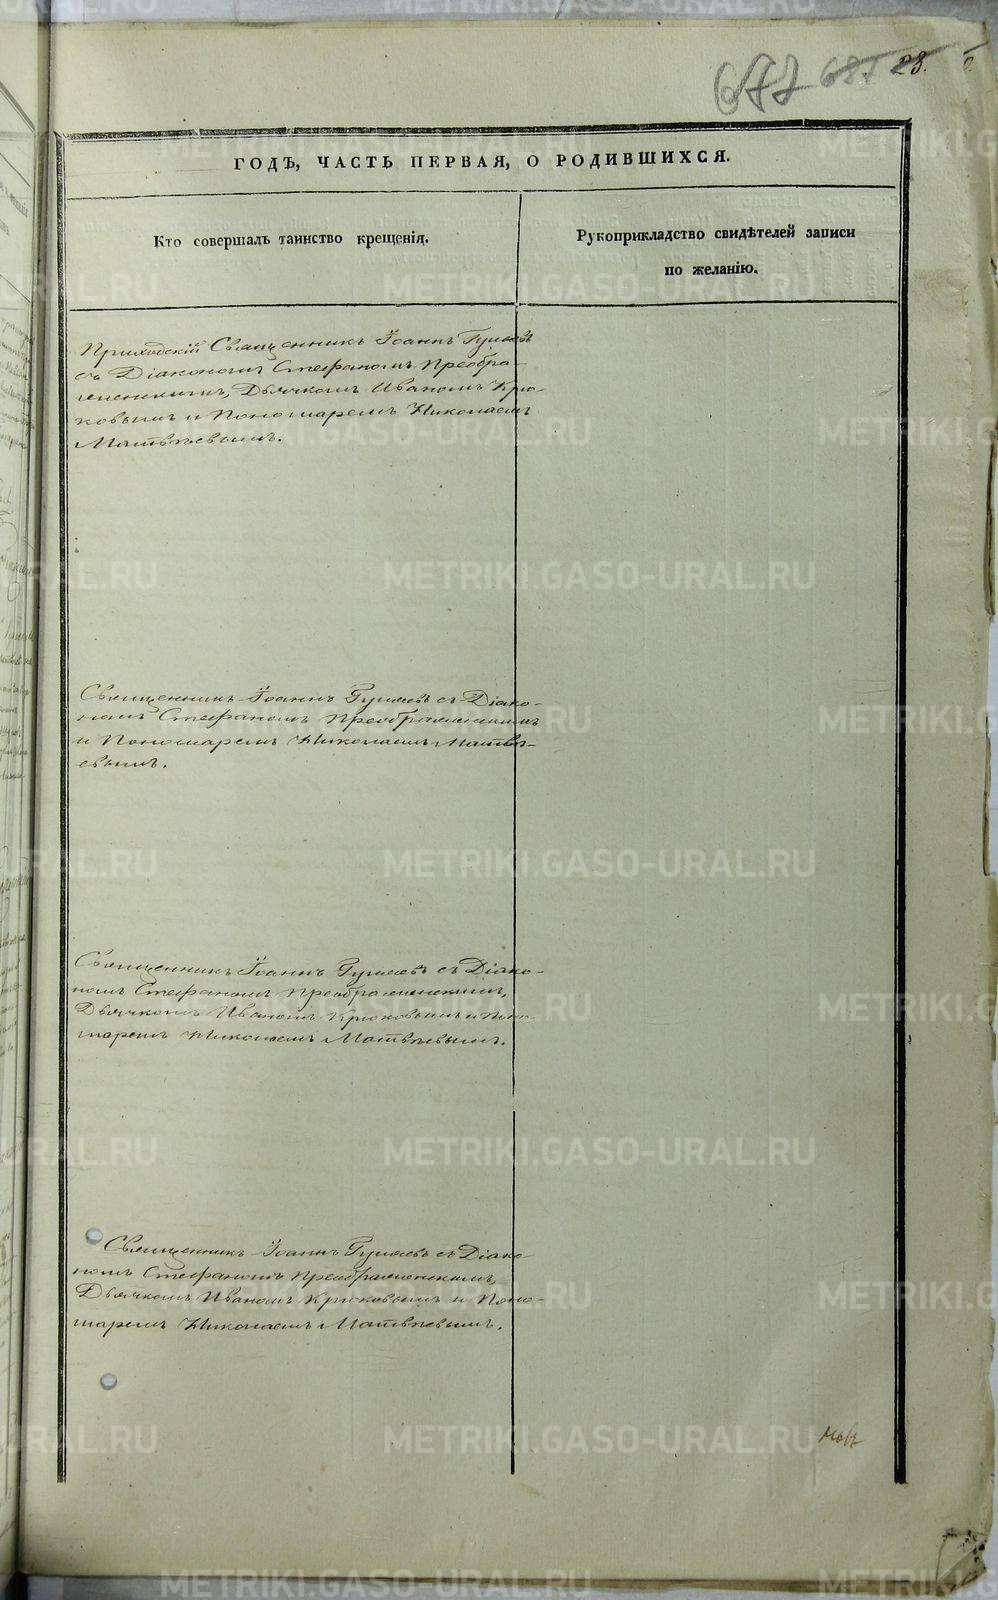 677 687 28.
ГОДЪ, ЧАСТЬ ПЕРВАЯ, О РОДИВШИХСЯ.
Кто совершалъ таинство крещенія.
Рукоприкладство свидѣтелей записи
по желанію.
Приходскій Священникъ Іоаннъ
съ Діакономъ Стефаномъ Преобра-
женскимъ, Дьячкомъ Иваномъ Крю-
ковымъ и Пономаремъ Николаемъ
Матвѣевымъ.
Священникъ Іоаннъ съ Діако-
номъ Стефаномъ Преображенскимъ
и Пономаремъ Николаемъ Матвѣ-
евымъ.
Священникъ Іоаннъ съ Діако-
номъ Стефаномъ Преображенскимъ,
Дьячкомъ Иваномъ Крюковымъ и Поно-
маремъ Николаемъ Матвѣевымъ.
Священникъ Іоаннъ съ Діако-
номъ Стефаномъ Преображенскимъ,
Дьячкомъ Иваномъ Крюковымъ и Поно-
маремъ Николаемъ Матвѣевымъ.
METRIKI.GASO-URAL.RU